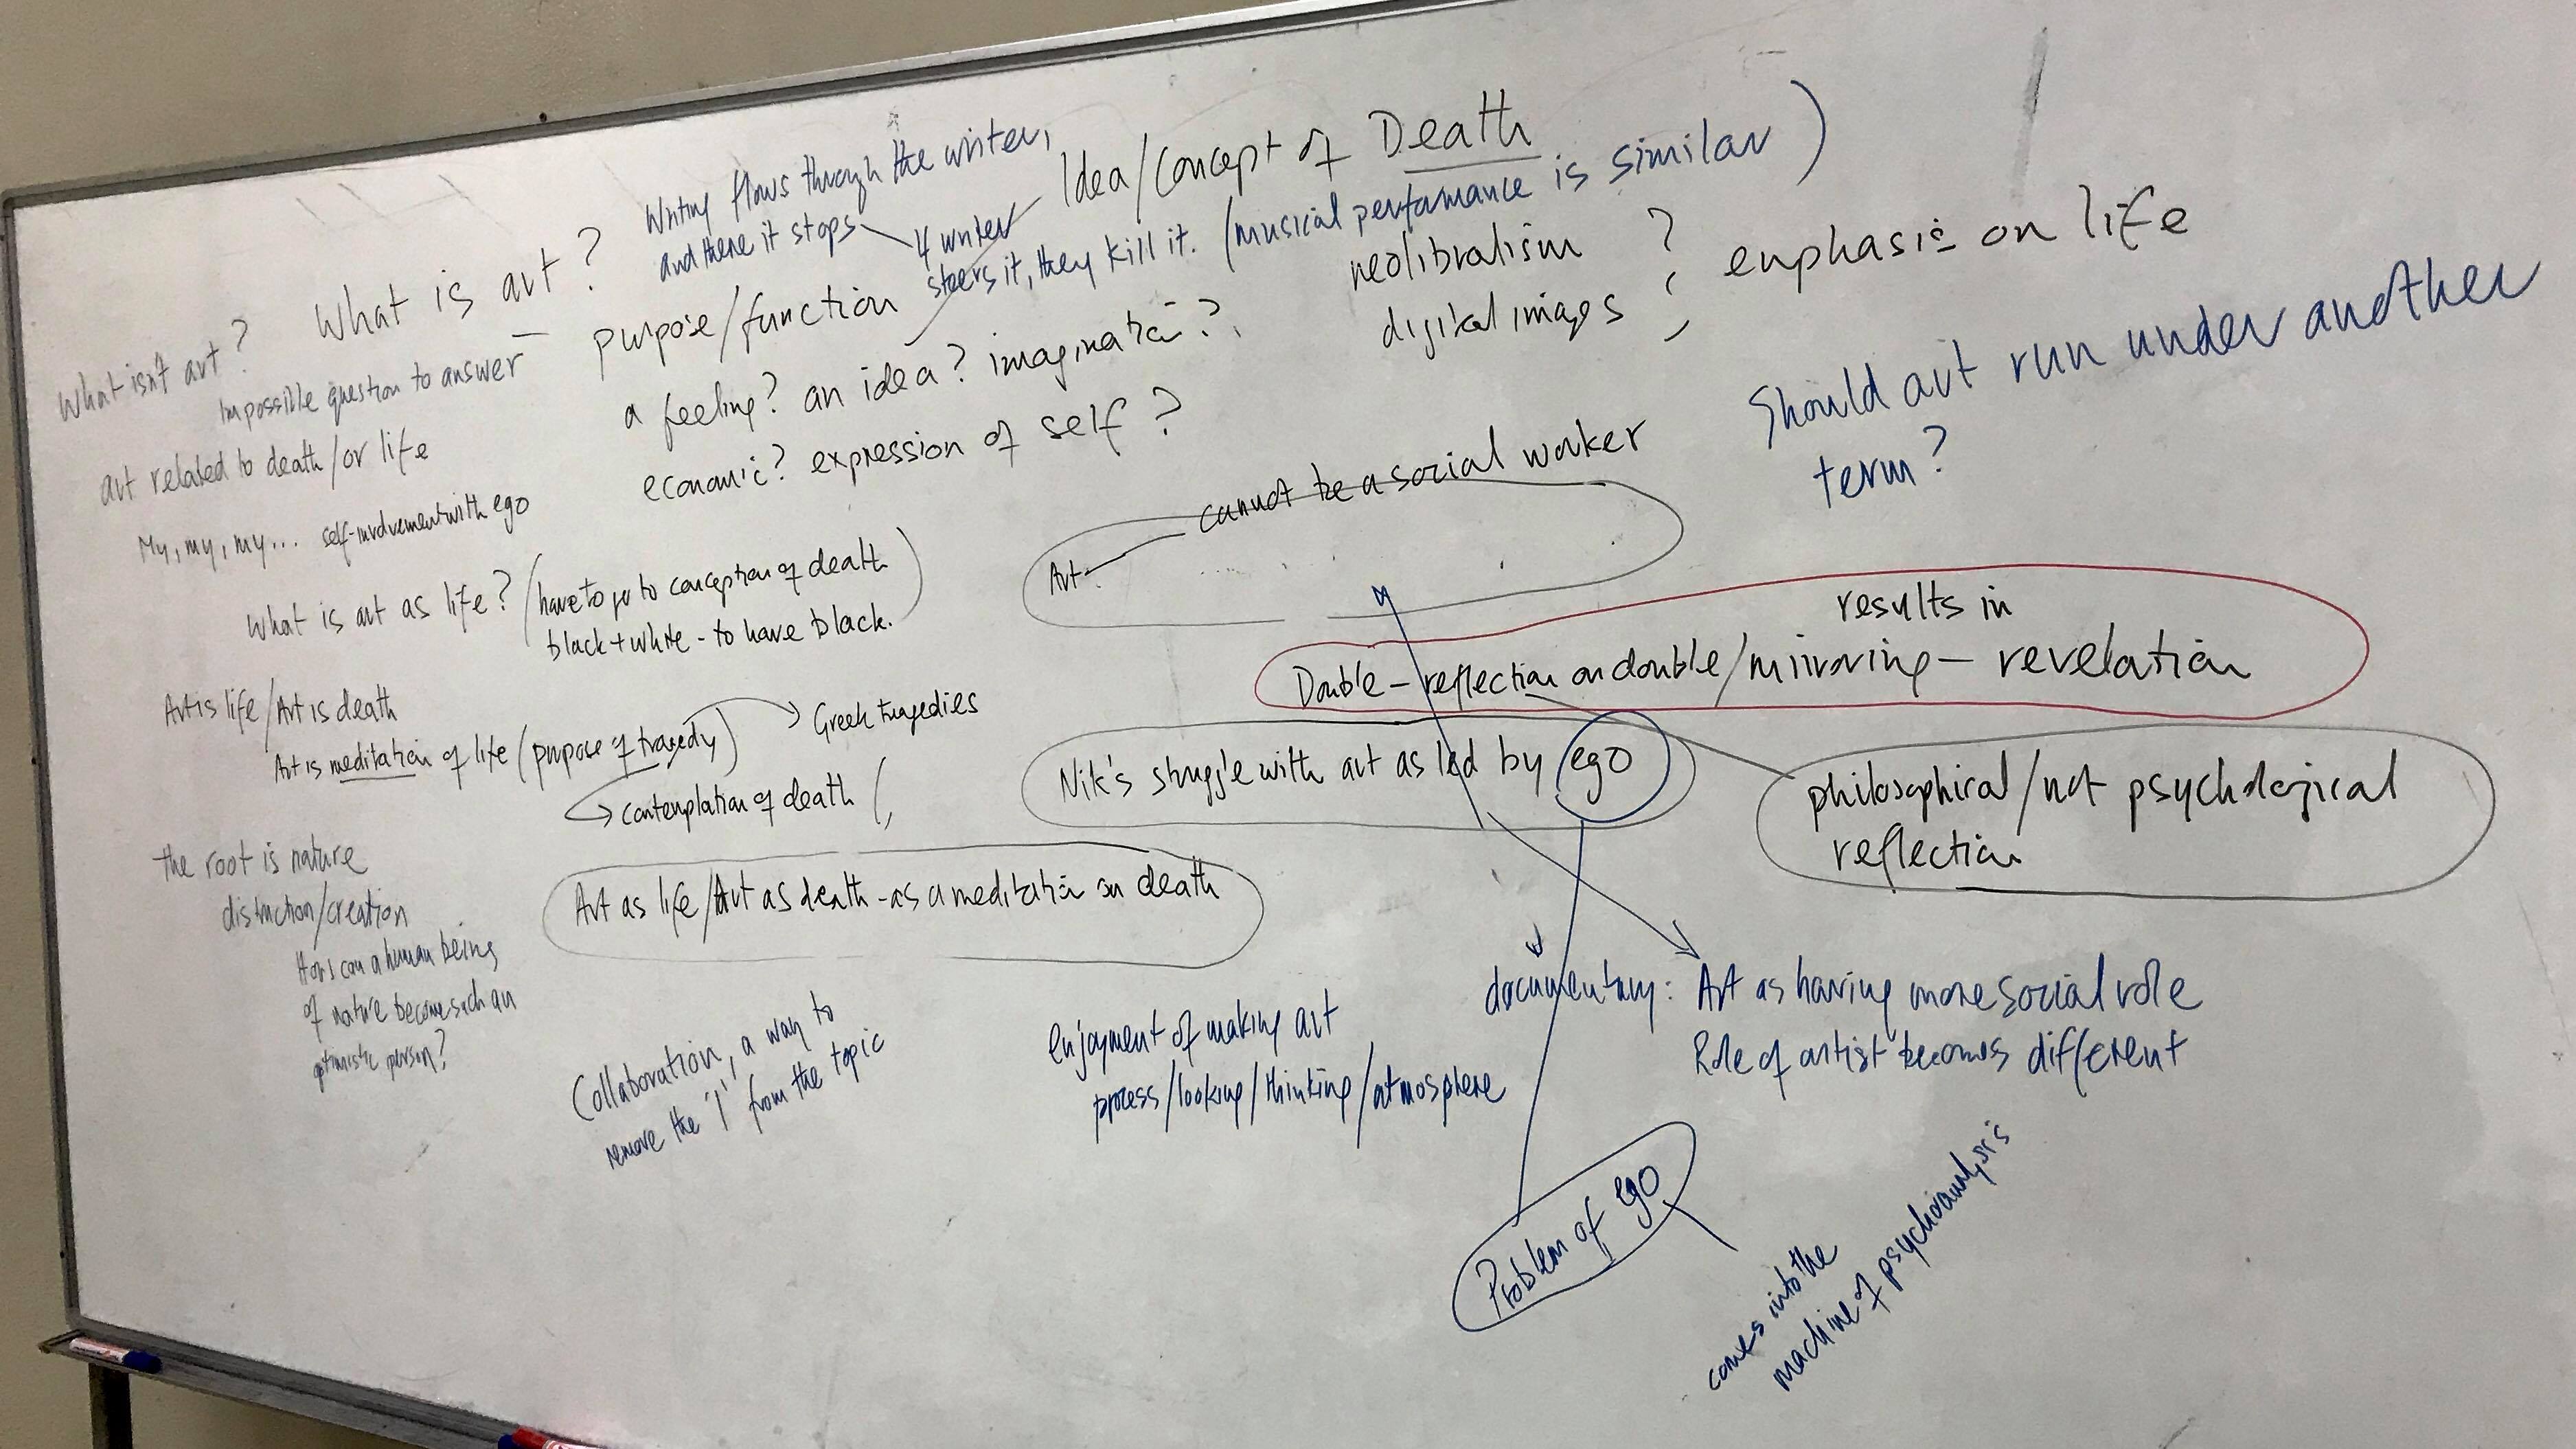 What isn't art?
What is art?
Impossible question to answer
art related to death/or life
My, my, my... self-involvement with ego
Writing flows through the writer,
and there it stops
If writer
steers it, they kill it. (musical performance is similar)
Idea/Concept of Death
purpose/function
a feeling? an idea? imagination?
economic? expression of self?
neolibralism ?
digital images
emphasis on life
Should art run under another
term?
What is art as life? (have to go to conception of death
black + white - to have black.)
Art is life/Art is death
Art is meditation of life (purpose of tragedy)
Greek tragedies
contemplation of death (,
the root is nature
distruction/creation
How can a human being
of nature become such an
optimistic person?
Art as life/Art as death - as a meditation on death
Art
cannot be a social worker
results in
Double - reflection on double/mirroring - revelation
Nik's struggle with art as led by ego
philosophical/not psychological
reflection
Collaboration, a way to
remove the 'I' from the topic
enjoyment of making art
process/looking/thinking/atmosphere
documentary: Art as having more social role
Role of artist becomes different
Problem of ego
comes into the
machine of psychoanalysis